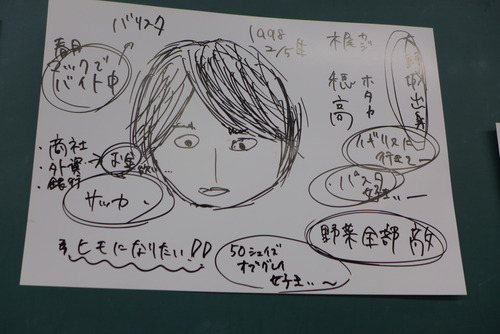 バリスタ
1998
2/5生
梶 カジ
穂高 ホタカ
出身
マックで
バイト中
イギリスに
行きてー
・商社
・外資
・銀行
→お金
パスタ
好きぃー
サッカー
野菜全部 敵
ヒモになりたい!!
50シェイズ
オブグレイ
好きぃ〜